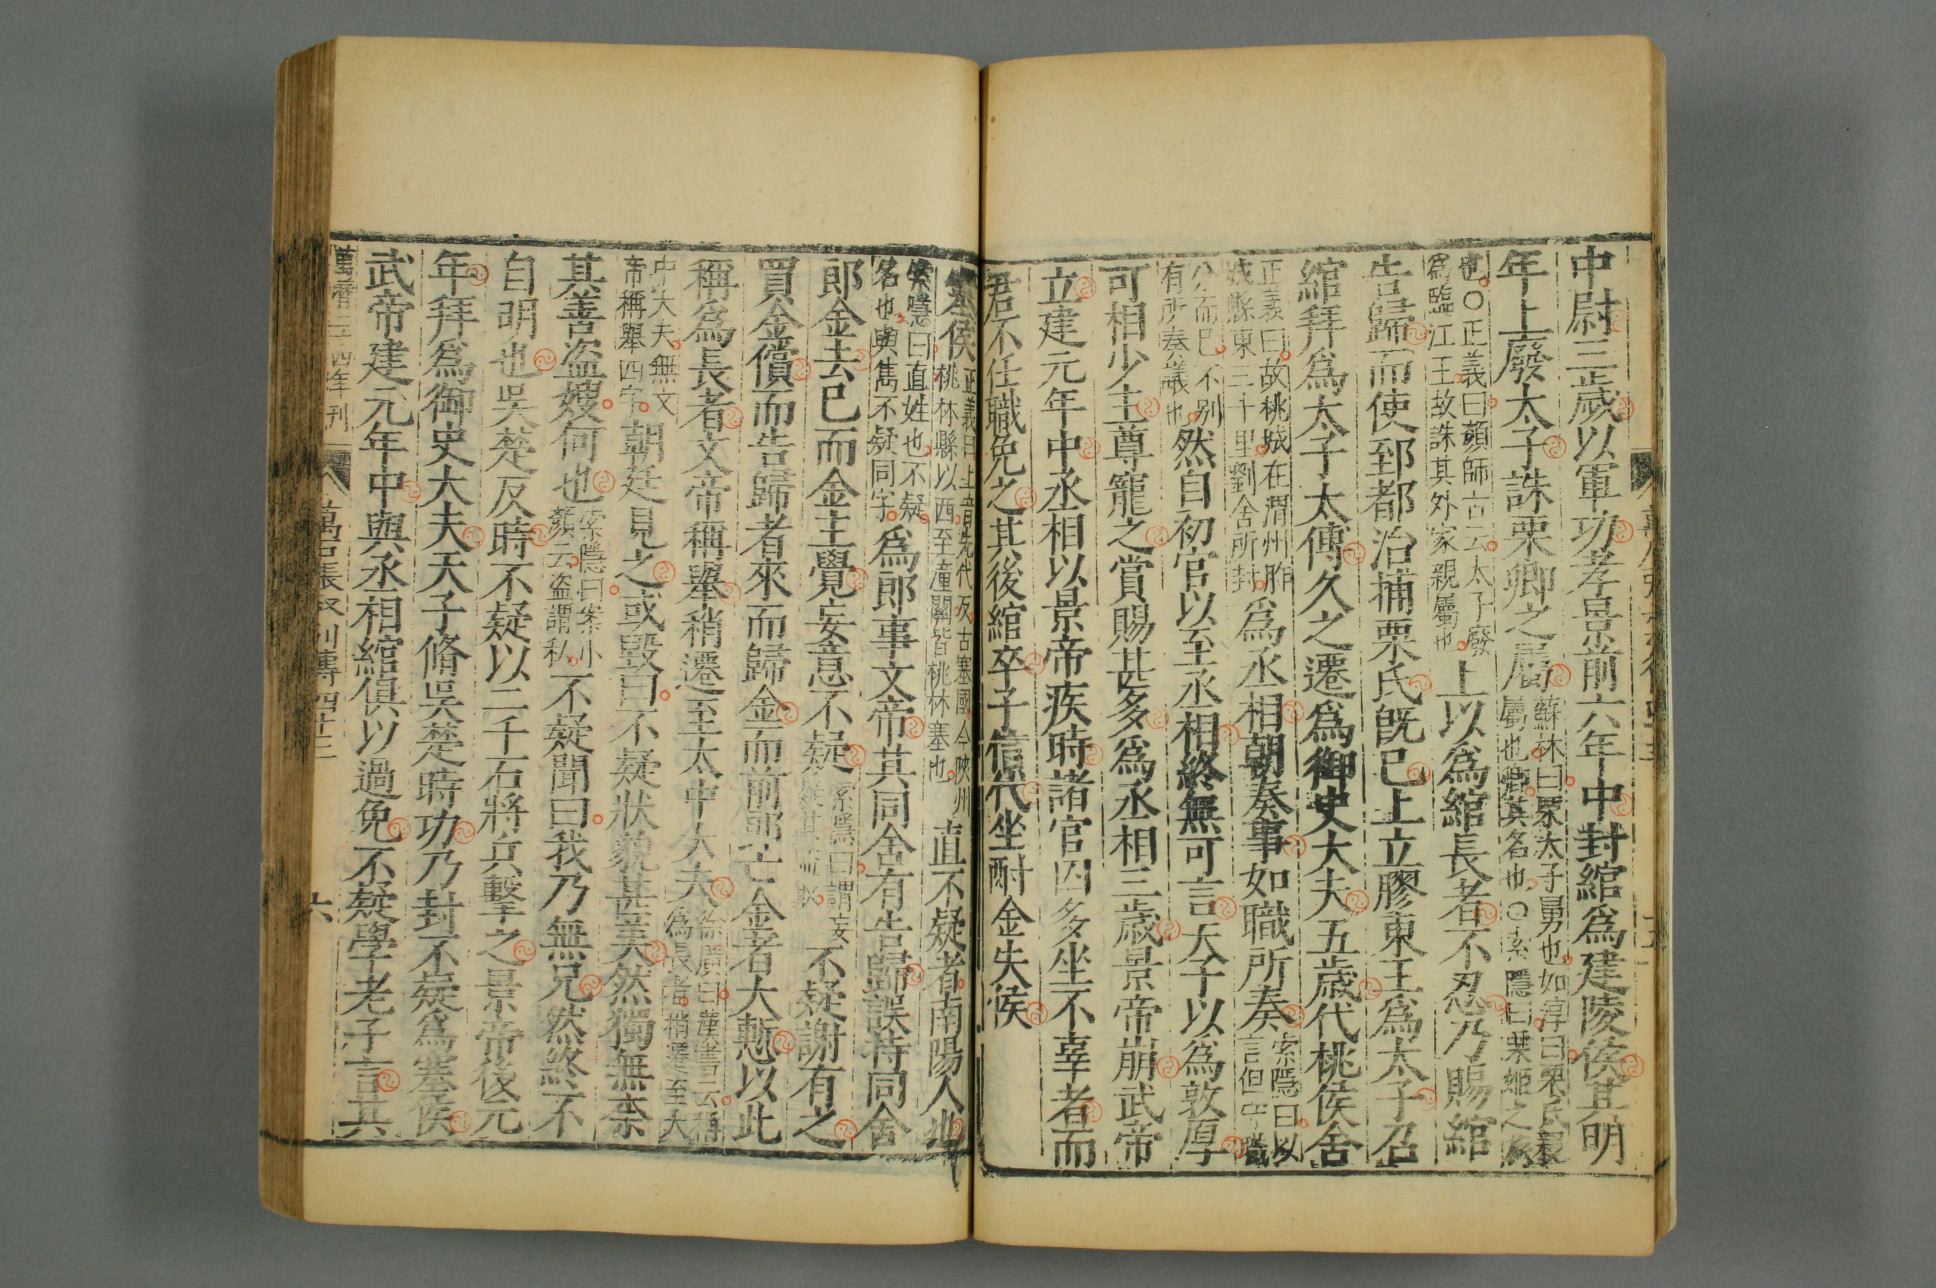 中尉三歲以軍功孝景前六年中封綰爲建陵侯其明
年上廢太子誅栗卿之屬蘇林曰栗太子舅也如淳曰栗氏親
屬也卿其名也○索隱曰栗姬之族
也○正義曰顏師古云太子廢
爲臨江王故誅其外家親屬也上以爲綰長者不忍乃賜綰
告歸而使郅都治捕栗氏旣已上立膠東王爲太子召
綰拜爲太子太傅久之遷爲御史大夫五歲代桃侯舍
正義曰故桃城在渭州胙
城縣東三十里劉舍所封爲丞相朝奏事如職所奏索隱曰以
言但守職
分而已不別
有所奏議也然自初官以至丞相終無可言天子以爲敦厚
可相少主尊寵之賞賜甚多爲丞相三歲景帝崩武帝
立建元年中丞相以景帝疾時諸官囚多坐不辜者而
君不任職免之其後綰卒子信代坐酎金失侯
塞侯正義曰上音先代反古塞國今陜州
桃林縣以西至潼關皆桃林塞也直不疑者南陽人也
索隱曰直姓也不疑
名也與雋不疑同字爲郎事文帝其同舍有告歸誤持同舍
郎金去已而金主覺妄意不疑索隱曰謂妄
疑其盜取不疑謝有之
買金償而告歸者來而歸金而前郎亡金者大慙以此
稱爲長者文帝稱舉稍遷至太中大夫徐廣曰漢書云稱
爲長者稍遷至大
中大夫無文
帝稱舉四字朝廷見之或毀曰不疑狀貌甚美然獨無柰
其善盜嫂何也索隱曰案小
顏云盜謂私不疑聞曰我乃無兄然終不
自明也吳楚反時不疑以二千石將兵擊之景帝後元
年拜爲御史大夫天子脩吳楚時功乃封不疑爲塞侯
武帝建元年中與丞相綰俱以過免不疑學老子言其
萬曆二十四年刊
萬石張叔列傳四十三
六